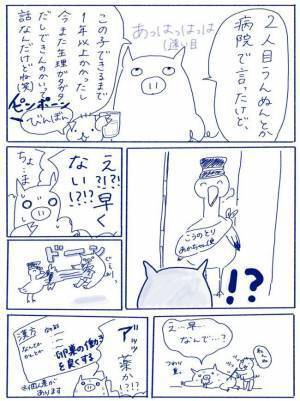 2人目うんぬんとか
病院で言ったけど、
あっはっはっは
(遠い目
この子できるまで
1年以上かかったし
今また生理がグダグダ
話なんだけどね(笑)
ピンポーン
びんぽん
こうのとり
あかちゃん便
!?
え?!?!早く
ない!?!?
ちょ…ま…
ドーン
え…早…
なんで…?
つわり
アッッ
薬か!?!?
漢方
卵巣の働き
を良くする
※個人差が
あります